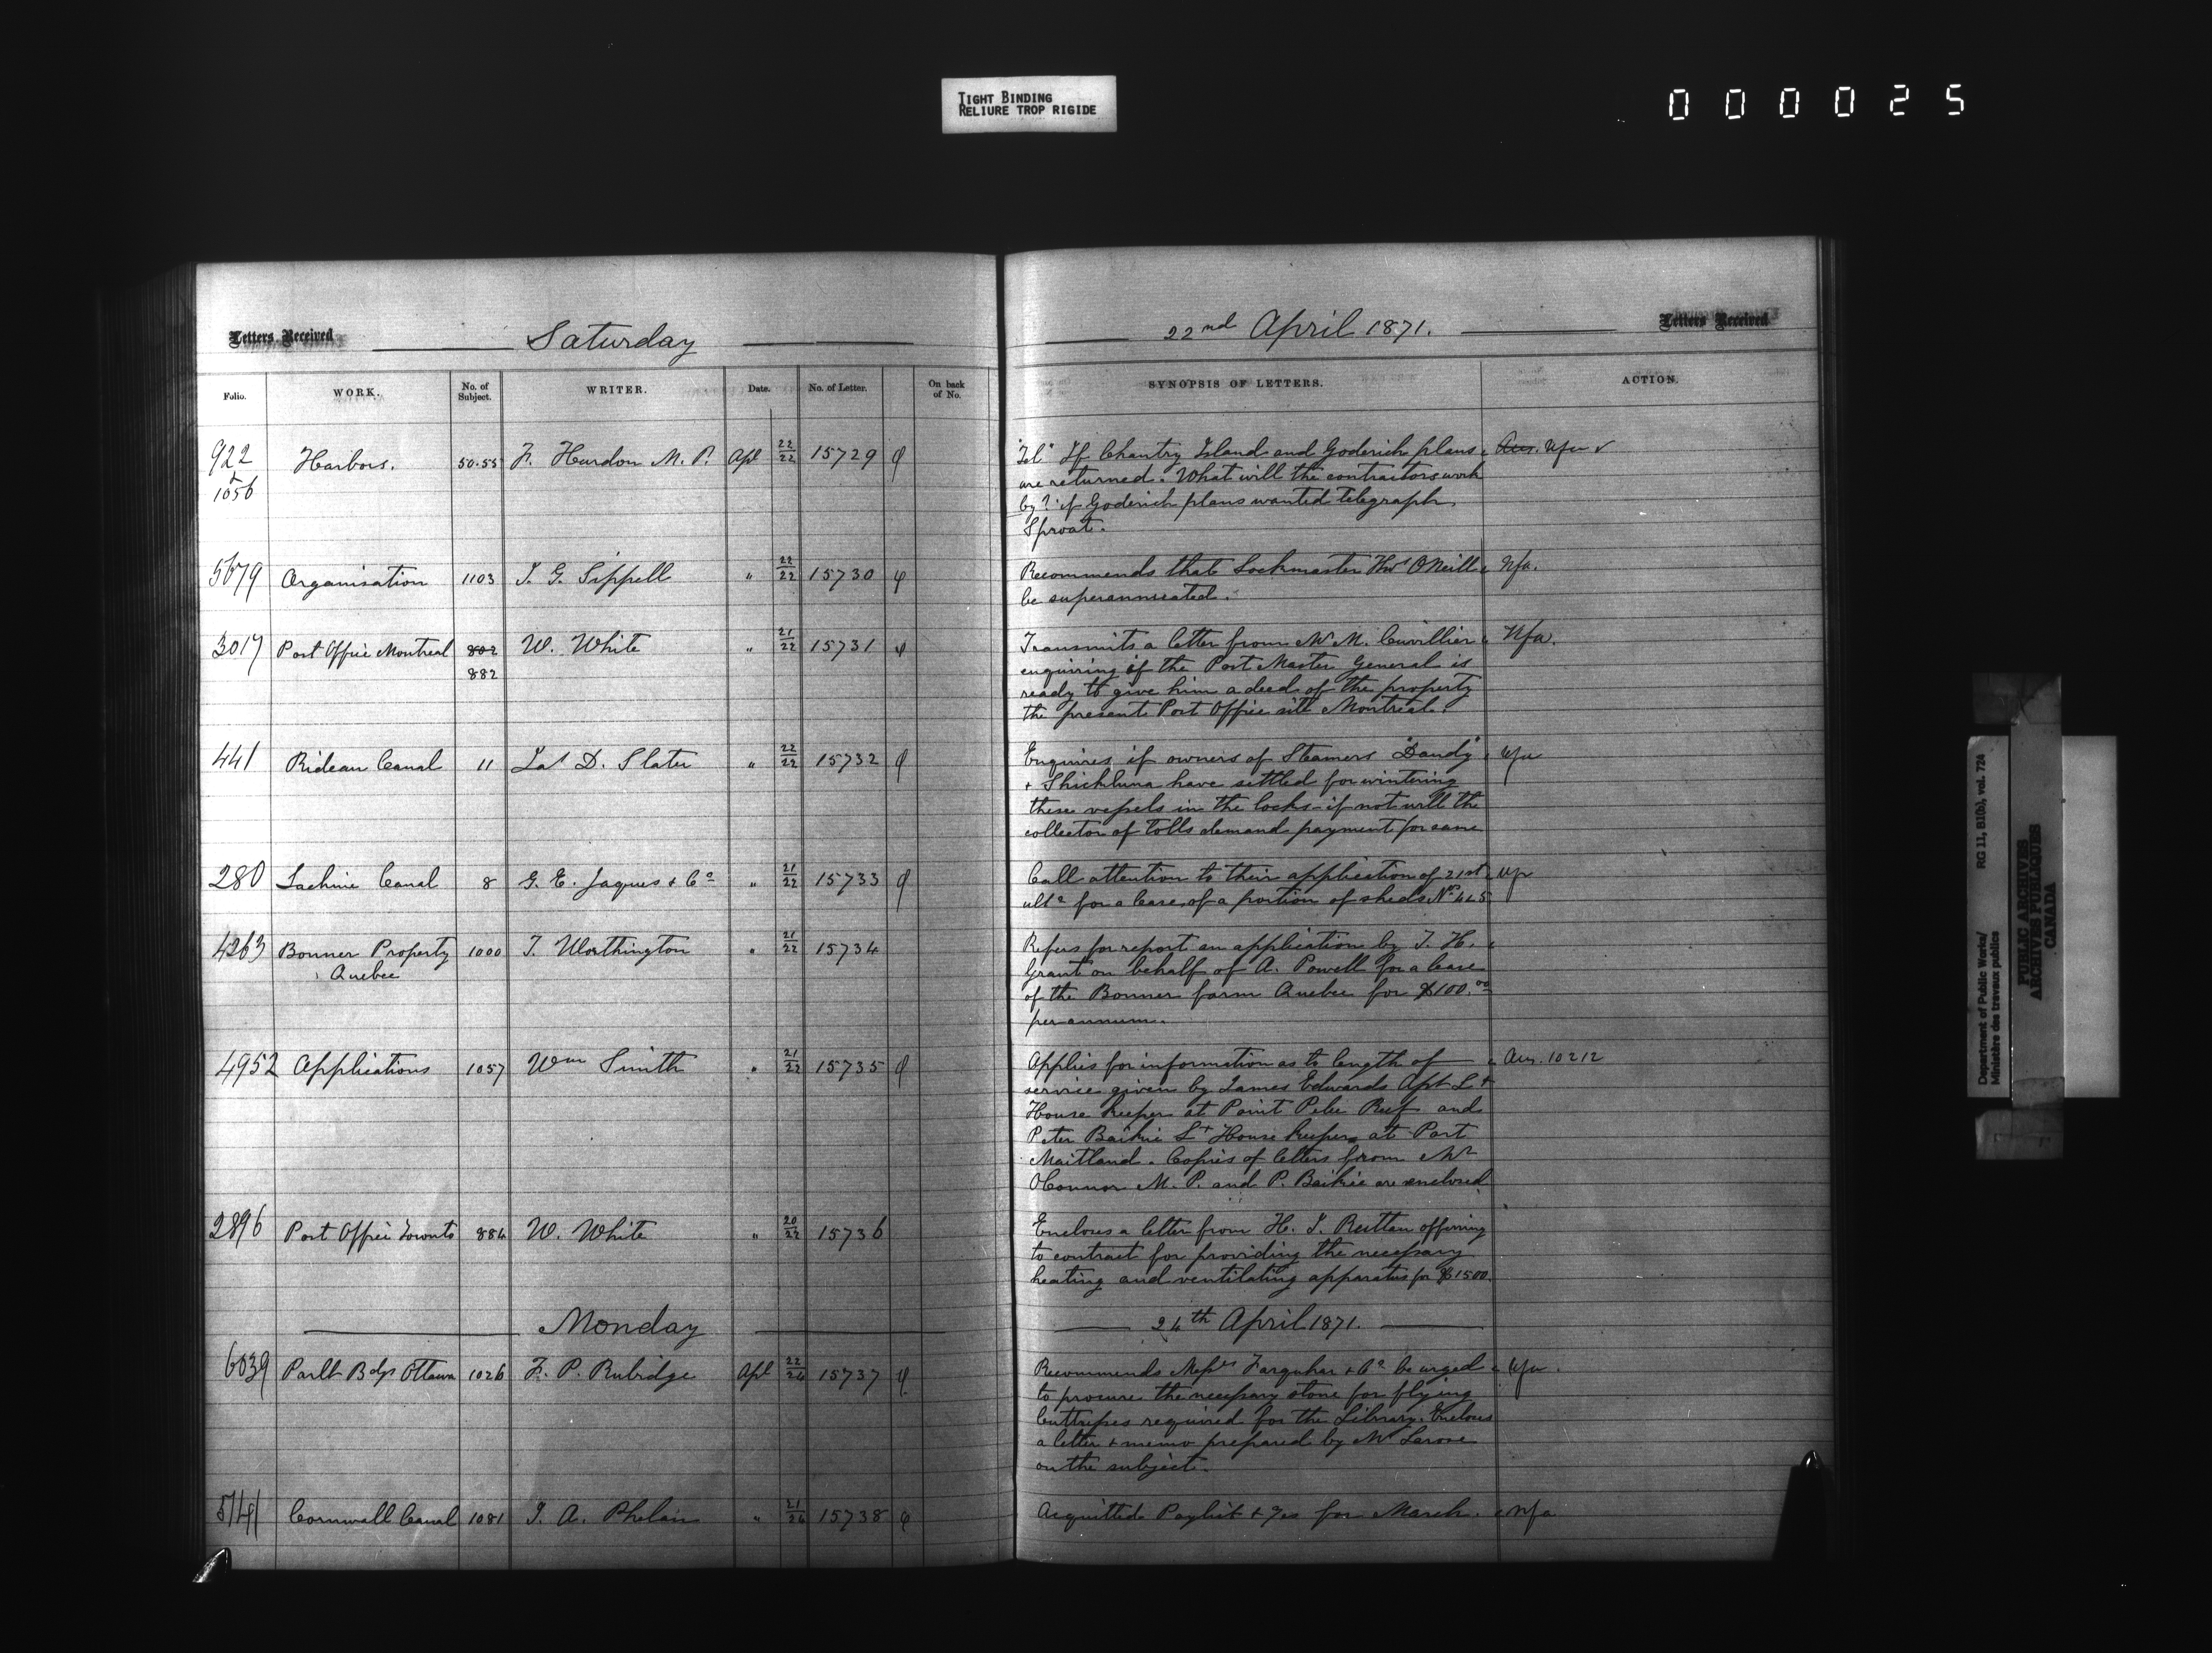 TIGHT BINDING
RELIURE TROP RIGIDE
000025
Letters Received Saturday 22nd April 1871. Letters Received
Folio. WORK. No. of Subject. WRITER. Date. No. of Letter. On back of No. SYNOPSIS OF LETTERS. ACTION.
922 & 1056 Harbors. 50.55 F. Hurdon M.P. Apl 22/22 15729 "Tel" If Chantry Island and Goderich plans Ans. Nfa
are returned. What will the contractors work
by? if Goderich plans wanted telegraph
Sproat.
5679 Organisation 1103 J. G. Sippell " 22/22 15730 Recommends that Lockmaster Thos O'Neill Nfa.
be superannuated.
3017 Post Office Montreal 802 W. White " 21/22 15731 Transmits a letter from Mr M. Cuvillier Nfa.
882 enquiring if the Post Master General is
ready to give him a deed of the property
the present Post Office site Montreal.
441 Rideau Canal 11 Jas D. Slater " 22/22 15732 Enquires if owners of Steamers "Dandy" Nfa
& Shickluna have settled for wintering
these vessels in the locks - if not will the
collector of tolls demand payment for same
280 Lachine Canal 8 G. E. Jaques & Co " 21/22 15733 Call attention to their application of 21st Nfa
ulto for a lease of a portion of sheds No 4 & 5
4263 Bonner Property 1000 T. Worthington " 21/22 15734 Refers for report an application by T. H.
Quebec Grant on behalf of A. Powell for a lease
of the Bonner farm Quebec for $100.00
per annum.
4952 Applications 1057 Wm Smith " 21/22 15735 Applies for information as to length of Ans. 10212
service given by James Edwards Apt Lt
House keeper at Point Pelee Reef and
Peter Baikie Lt House keeper at Port
Maitland. Copies of letters from Mr
O'Connor M.P. and P. Baikie are enclosed
2896 Post Office Toronto 884 W. White " 20/22 15736 Encloses a letter from H. J. Ruttan offering
to contract for providing the necessary
heating and ventilating apparatus for $1500.
Monday 24th April 1871.
6039 Parlt Bdgs Ottawa 1026 F. P. Rubidge Apl 22/24 15737 Recommends Messrs Farquhar & Co be urged Nfa.
to procure the necessary stone for flying
buttresses required for the Library. Encloses
a letter & memo prepared by Mr Larose
on the subject.
5141 Cornwall Canal 1081 J. A. Phelan " 21/24 15738 Acquitted Paylist for March. Nfa
Department of Public Works/ RG 11, B1(b), vol. 724
Ministère des travaux publics
PUBLIC ARCHIVES
ARCHIVES PUBLIQUES
CANADA